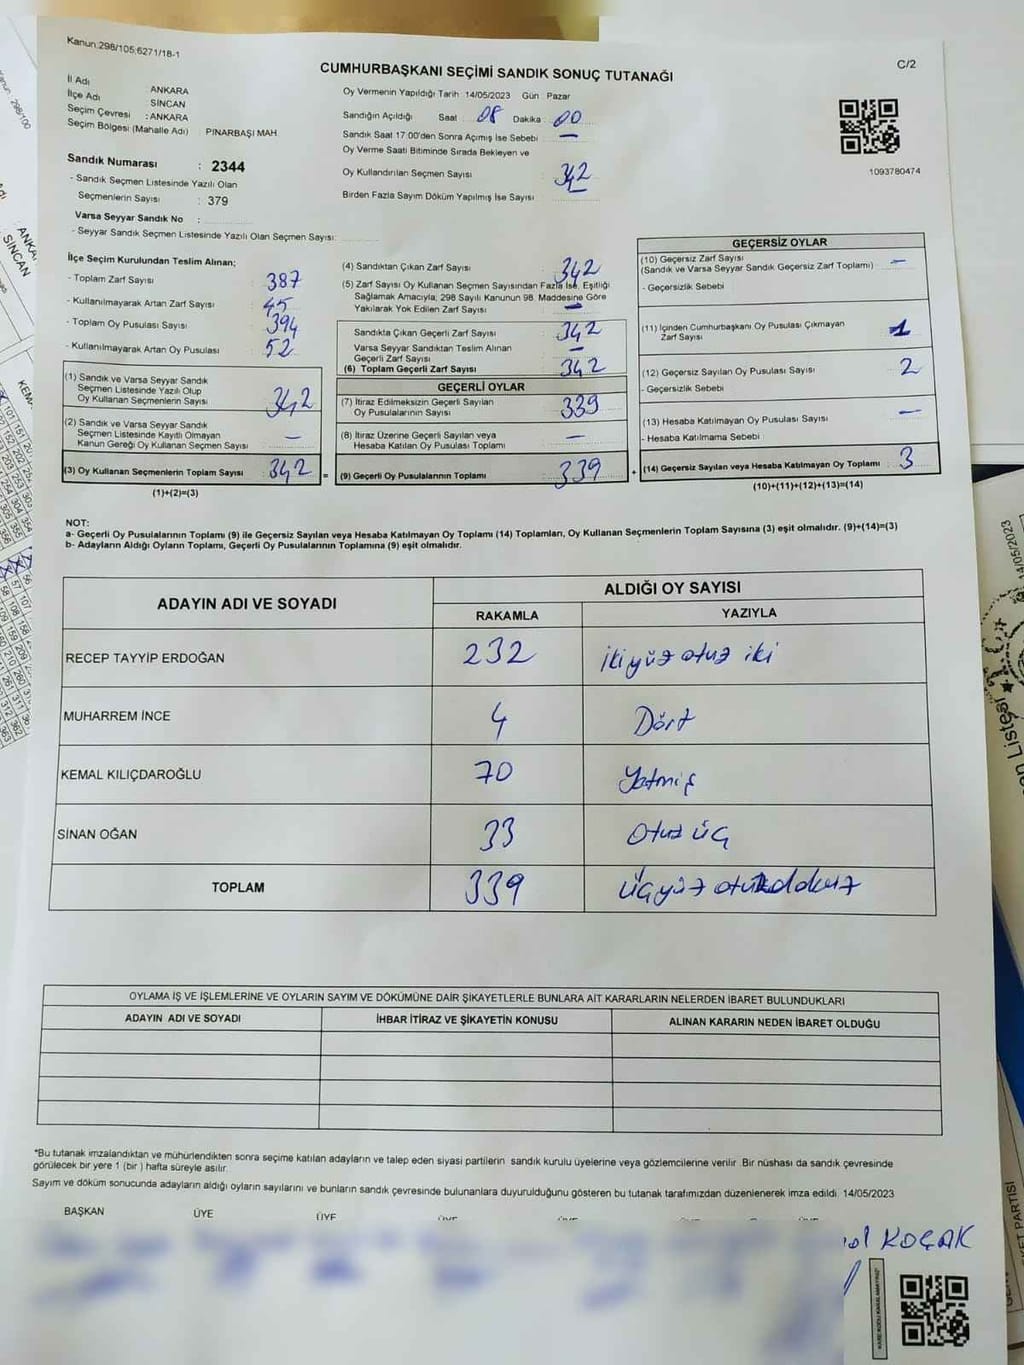 Kanun:298/105;6271/18-1
C/2
CUMHURBAŞKANI SEÇİMİ SANDIK SONUÇ TUTANAĞI
İl Adı ANKARA
İlçe Adı SİNCAN
Seçim Çevresi : ANKARA
Seçim Bölgesi (Mahalle Adı) : PINARBAŞI MAH.
Sandık Numarası : 2344
- Sandık Seçmen Listesinde Yazılı Olan
Seçmenlerin Sayısı : 379
Varsa Seyyar Sandık No :
- Seyyar Sandık Seçmen Listesinde Yazılı Olan Seçmen Sayısı:
Oy Vermenin Yapıldığı Tarih 14/05/2023 Gün Pazar
Sandığın Açıldığı Saat 08 Dakika 00
Sandık Saat 17:00'den Sonra Açımış İse Sebebi —
Oy Verme Saati Bitiminde Sırada Bekleyen ve
Oy Kullandırılan Seçmen Sayısı 342
Birden Fazla Sayım Döküm Yapılmış İse Sayısı —
1093780474
İlçe Seçim Kurulundan Teslim Alınan;
- Toplam Zarf Sayısı : 387
- Kullanılmayarak Artan Zarf Sayısı : 45
- Toplam Oy Pusulası Sayısı : 394
- Kullanılmayarak Artan Oy Pusulası : 52
(1) Sandık ve Varsa Seyyar Sandık
Seçmen Listesinde Yazılı Olup
Oy Kullanan Seçmenlerin Sayısı : 342
(2) Sandık ve Varsa Seyyar Sandık
Seçmen Listesinde Kayıtlı Olmayan
Kanun Gereği Oy Kullanan Seçmen Sayısı : —
(3) Oy Kullanan Seçmenlerin Toplam Sayısı : 342
(1)+(2)=(3)
(4) Sandıktan Çıkan Zarf Sayısı : 342
(5) Zarf Sayısı Oy Kullanan Seçmen Sayısından Fazla İse, Eşitliği
Sağlamak Amacıyla; 298 Sayılı Kanunun 98. Maddesine Göre
Yakılarak Yok Edilen Zarf Sayısı : —
Sandıkta Çıkan Geçerli Zarf Sayısı : 342
Varsa Seyyar Sandıktan Teslim Alınan
Geçerli Zarf Sayısı : —
(6) Toplam Geçerli Zarf Sayısı : 342
GEÇERLİ OYLAR
(7) İtiraz Edilmeksizin Geçerli Sayılan
Oy Pusulalarının Sayısı : 339
(8) İtiraz Üzerine Geçerli Sayılan veya
Hesaba Katılan Oy Pusulası Toplamı : —
= (9) Geçerli Oy Pusulalarının Toplamı : 339
GEÇERSİZ OYLAR
(10) Geçersiz Zarf Sayısı
(Sandık ve Varsa Seyyar Sandık Geçersiz Zarf Toplamı) : —
- Geçersizlik Sebebi
(11) İçinden Cumhurbaşkanı Oy Pusulası Çıkmayan
Zarf Sayısı : 1
(12) Geçersiz Sayılan Oy Pusulası Sayısı : 2
- Geçersizlik Sebebi
(13) Hesaba Katılmayan Oy Pusulası Sayısı : —
- Hesaba Katılmama Sebebi
+ (14) Geçersiz Sayılan veya Hesaba Katılmayan Oy Toplamı : 3
(10)+(11)+(12)+(13)=(14)
NOT:
a- Geçerli Oy Pusulalarının Toplamı (9) ile Geçersiz Sayılan veya Hesaba Katılmayan Oy Toplamı (14) Toplamları, Oy Kullanan Seçmenlerin Toplam Sayısına (3) eşit olmalıdır. (9)+(14)=(3)
b- Adayların Aldığı Oyların Toplamı, Geçerli Oy Pusulalarının Toplamına (9) eşit olmalıdır.
ADAYIN ADI VE SOYADI ALDIĞI OY SAYISI
RAKAMLA YAZIYLA
RECEP TAYYİP ERDOĞAN 232 ikiyüz otuz iki
MUHARREM İNCE 4 Dört
KEMAL KILIÇDAROĞLU 70 Yetmiş
SİNAN OĞAN 33 Otuz üç
TOPLAM 339 üçyüz otuzdokuz
OYLAMA İŞ VE İŞLEMLERİNE VE OYLARIN SAYIM VE DÖKÜMÜNE DAİR ŞİKAYETLERLE BUNLARA AİT KARARLARIN NELERDEN İBARET BULUNDUKLARI
ADAYIN ADI VE SOYADI İHBAR İTİRAZ VE ŞİKAYETİN KONUSU ALINAN KARARIN NEDEN İBARET OLDUĞU
*Bu tutanak imzalandıktan ve mühürlendikten sonra seçime katılan adayların ve talep eden siyasi partilerin sandık kurulu üyelerine veya gözlemcilerine verilir. Bir nüshası da sandık çevresinde
görülecek bir yere 1 (bir ) hafta süreyle asılır.
Sayım ve döküm sonucunda adayların aldığı oyların sayılarını ve bunların sandık çevresinde bulunanlara duyurulduğunu gösteren bu tutanak tarafımızdan düzenlenerek imza edildi. 14/05/2023
BAŞKAN ÜYE ÜYE ÜYE ÜYE ÜYE ÜYE
KOÇAK